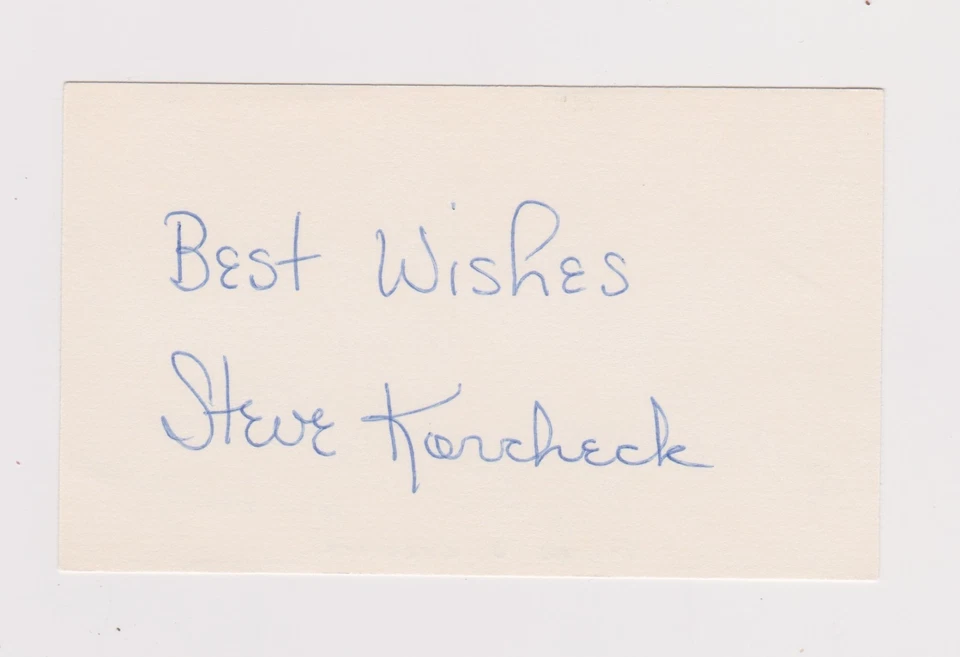 Best Wishes
Steve Korcheck